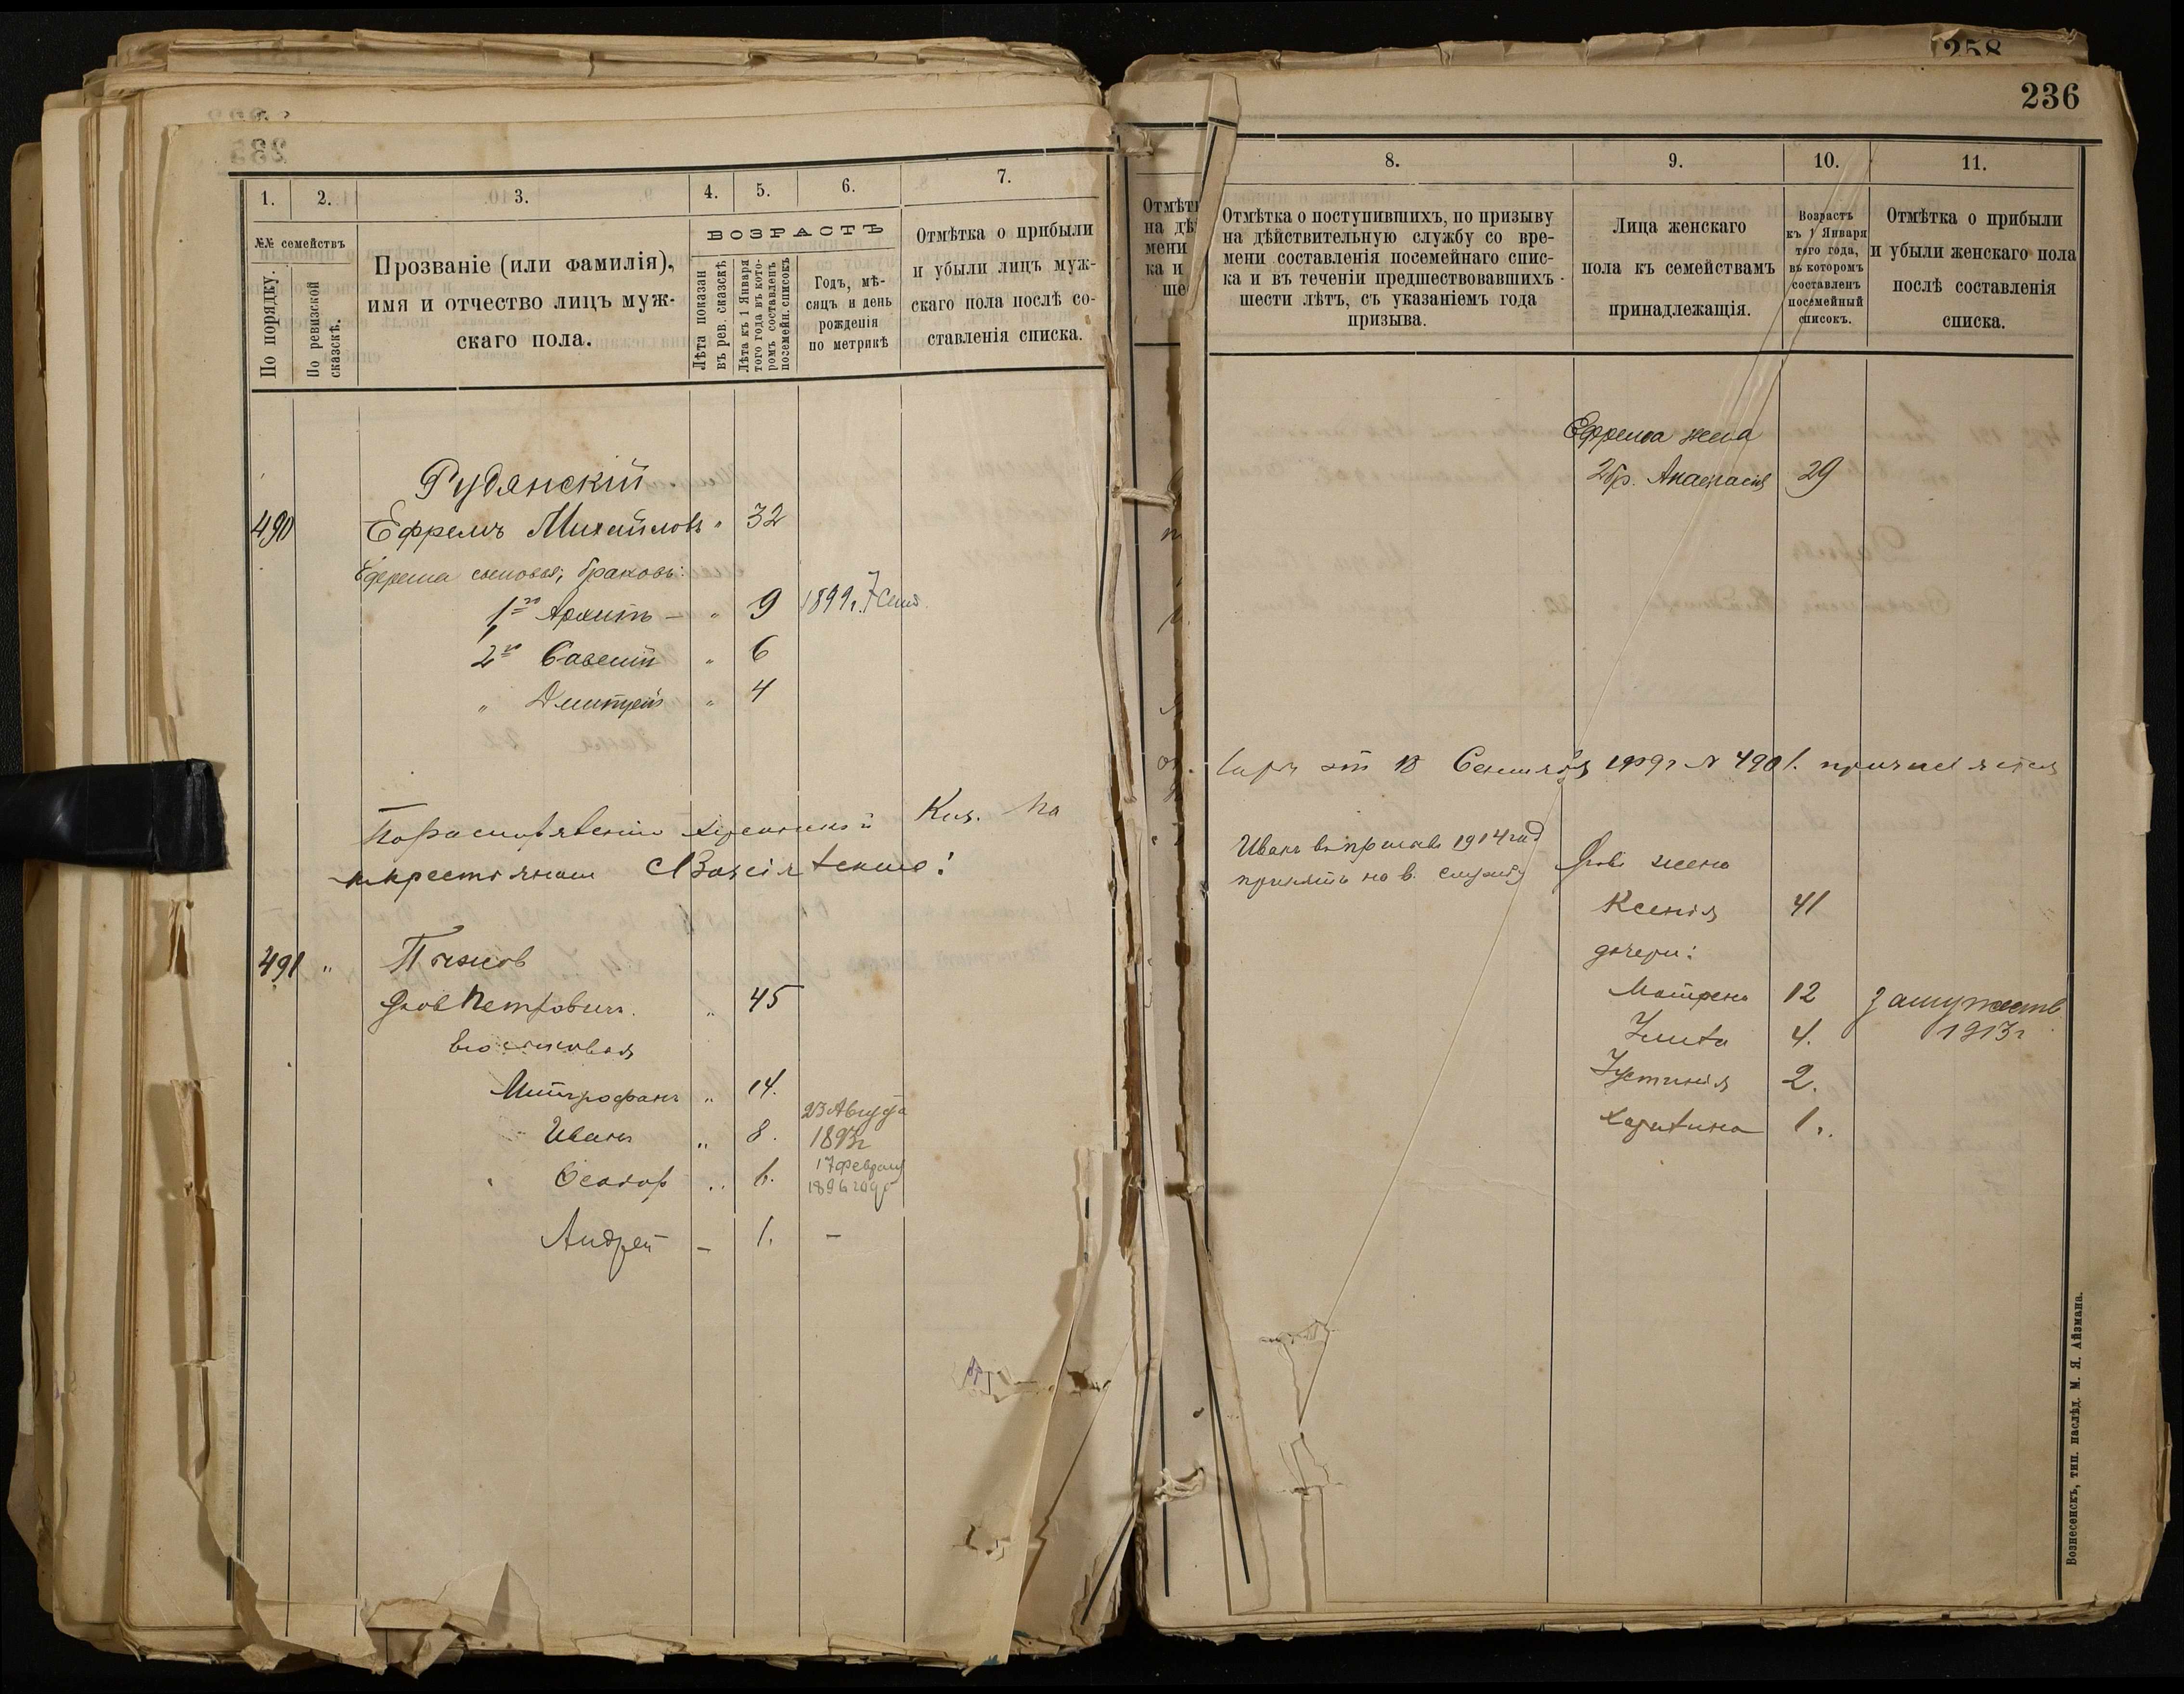 258
236
1. 2. 3. 4. 5. 6. 7.
№№ семействъ
По порядку.
По ревизской сказскѣ.
Прозваніе (или фамилія),
имя и отчество лицъ муж-
скаго пола.
ВОЗРАСТЪ
Лѣта показан
въ рев. сказскѣ
Лѣта къ 1 Января
того года въ кото-
ромъ составленъ
поземейн. списокъ
Годъ, мѣ-
сяцъ и день
рожденія
по метрикѣ
Отмѣтка о прибыли
и убыли лицъ муж-
скаго пола послѣ со-
ставленія списка.
Рудянскій
490 Ефремъ Михайловъ " 32
Ефрема сыновья, браковъ:
1го Архипъ — " 9 1899г. 7
2го Савелій " 6
" Дмитрій " 4
491 "
Петровичъ. " 45
его сыновья
Митрофанъ " 14.
Иванъ " 8. 23 Августа 1893г
Ѳеодор " 6. 17 февраля 1896 года
Андрей — 1. —
8. 9. 10. 11.
Отмѣтка о поступившихъ, по призыву
на дѣйствительную службу со вре-
мени составленія посемейнаго спис-
ка и въ теченіи предшествовавшихъ
шести лѣтъ, съ указаніемъ года
призыва.
Лица женскаго
пола къ семействамъ
принадлежащія.
Возрастъ
къ 1 Января
того года,
въ которомъ
составленъ
посемейный
списокъ.
Отмѣтка о прибыли
и убыли женскаго пола
послѣ составленія
списка.
Ефрема жена
2 бр. Анастасія 29
от 18 Сентября 1909г № 4901. причисляется
Иванъ въ призывъ 1914 год
принятъ на в. службу
жена
Ксенія 41
дочери:
Матрена 12 замужеств
1913г
4.
Устинія 2.
Харитина 1.
Вознесенскъ, тип. наслѣд. М. Я. Айзмана.